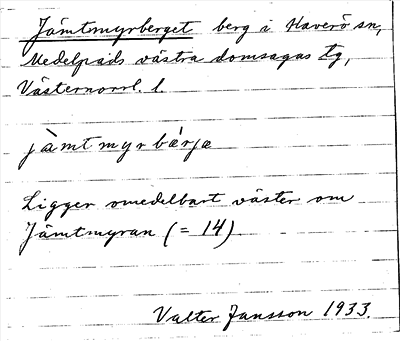 Jämtmyrberget berg i Haverö sn,
Medelpads västra domsagas tg,
Västernorrl. l.
jàmtmyrbǽrjæ
Ligger omedelbart väster om
Jämtmyran (= 14)
Valter Jansson 1933.